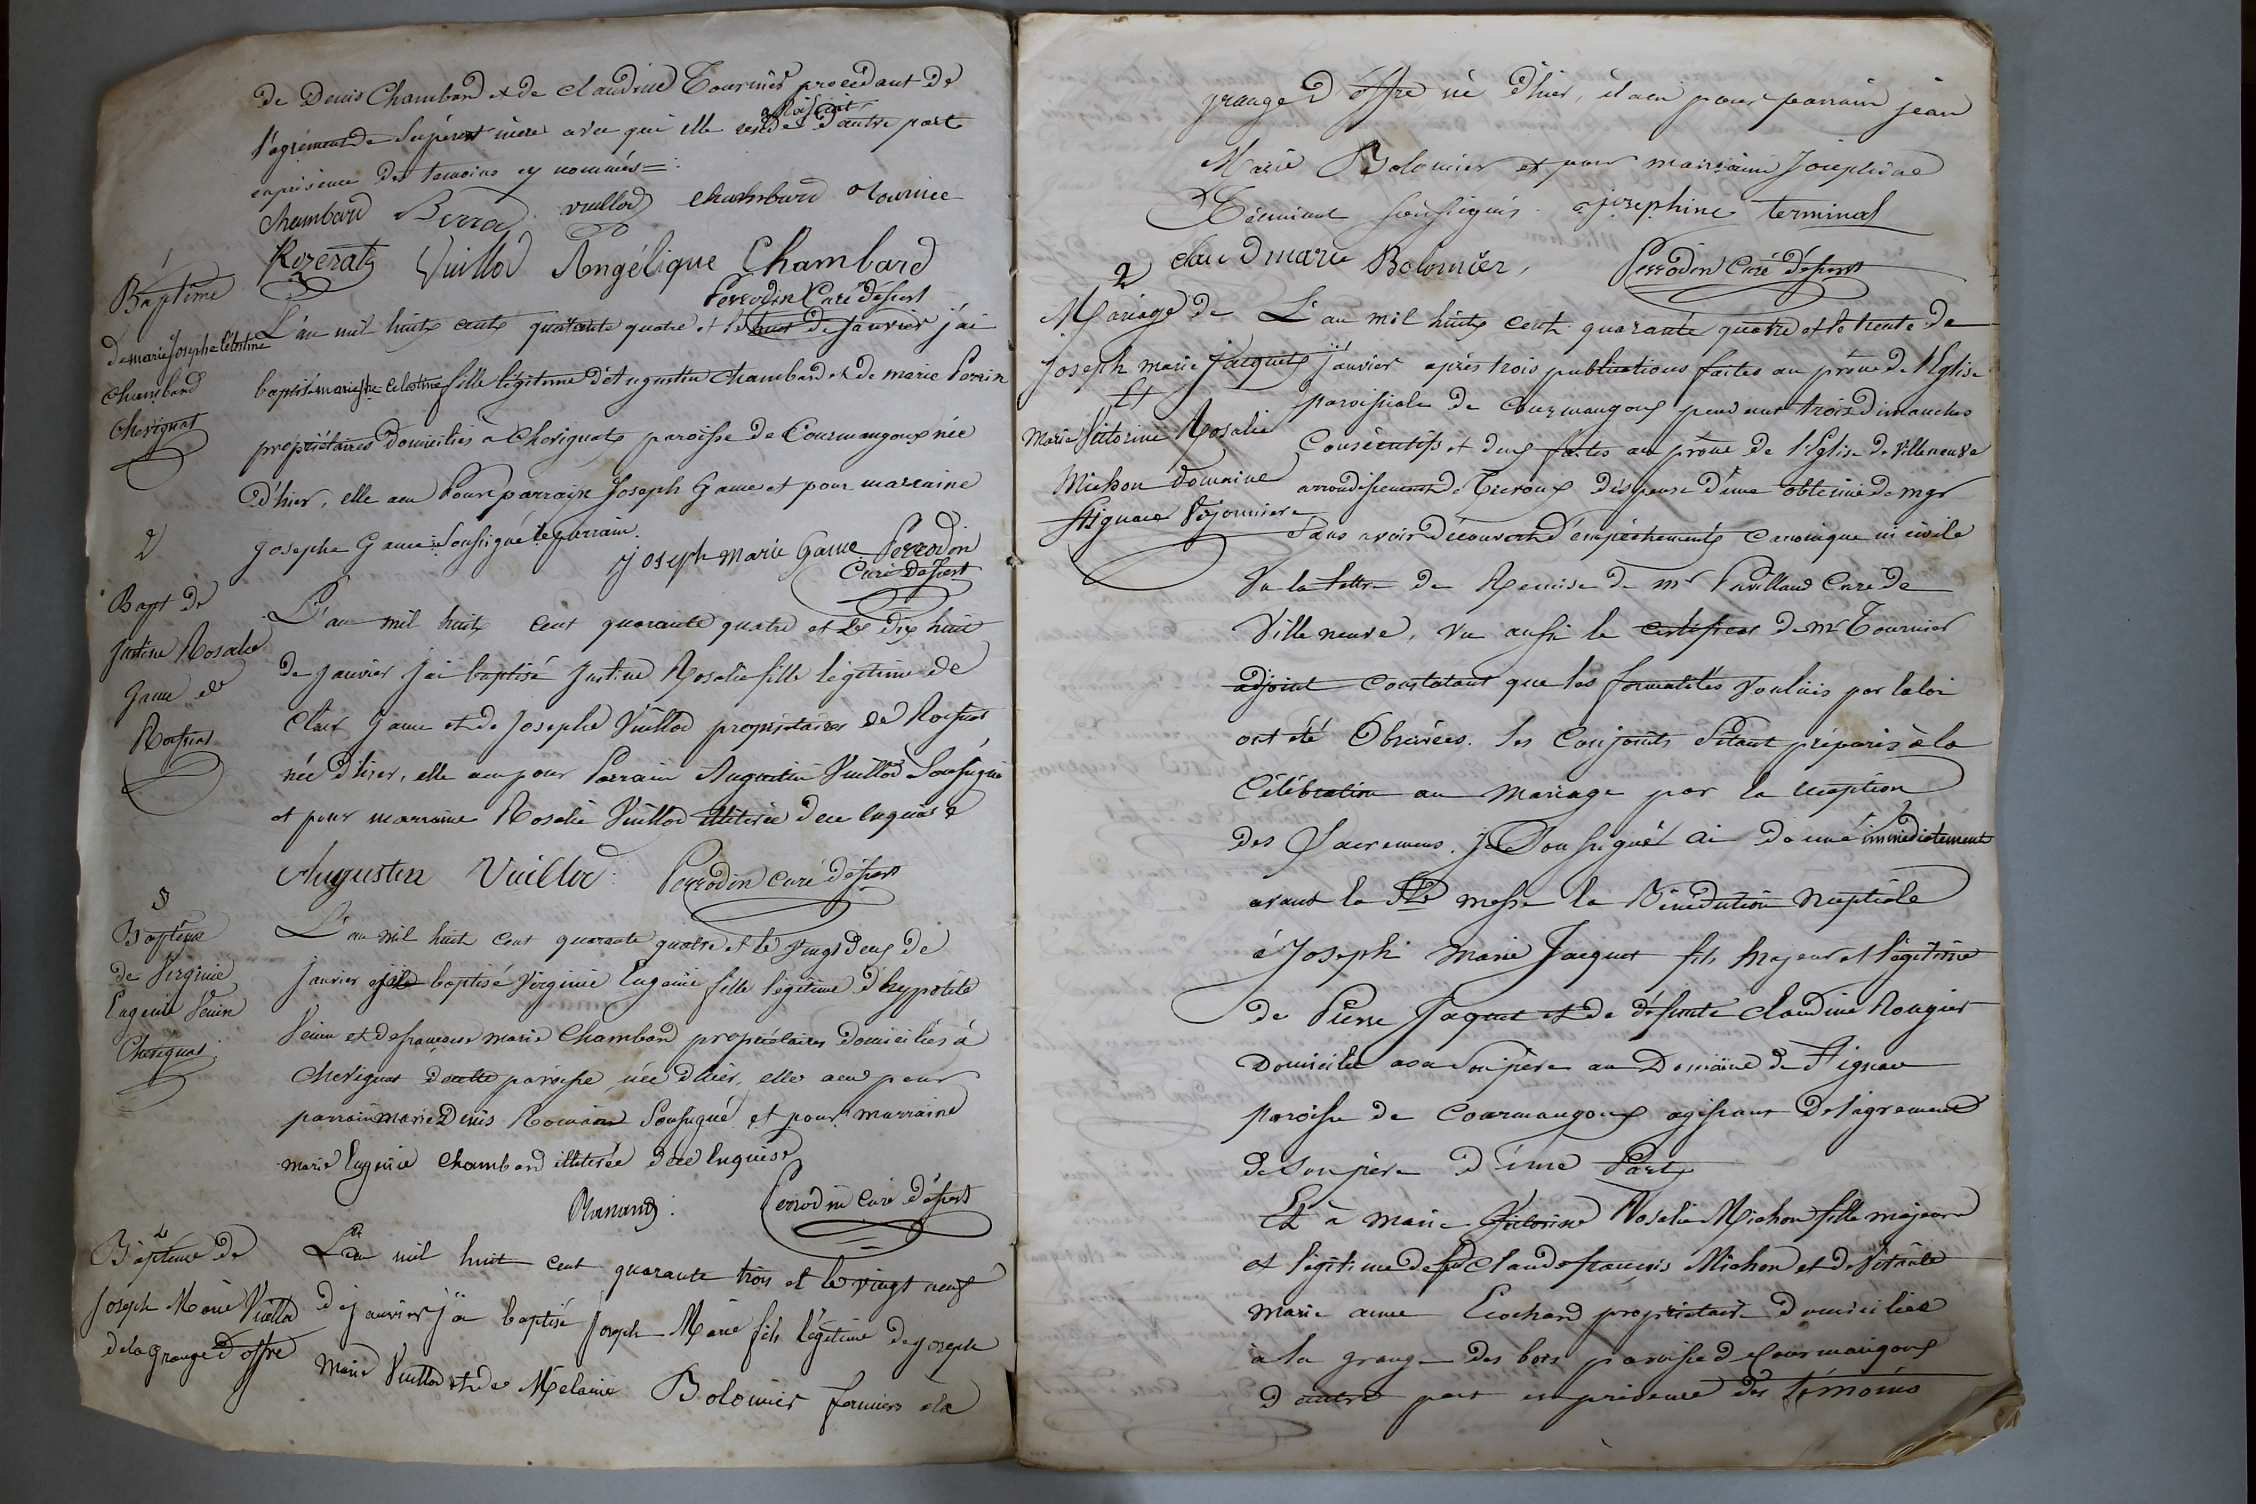 de Denis Chambard et de claudine Tournier procédant de
l'agrément de Sa père et mère avec qui elle reside d'autre part
enprésence des temoins cy nommés =
chambard Berra vuillod chambard tournier
Rozerat Vuillod Angélique Chambard
Perrodin Curé desset
1
Baptême
de marie Josephe Celestine
Chambard
Chevignat
L'an mil huit cent quarante quatre et le huit de janvier j'ai
baptisé marie Jphe celestine fille légitime d'Augustin Chambard et de marie Perrin
propriétaires domiciliés à Chevignat paroisse de Courmangoux née
d'hier, elle a eu Pour parrain Joseph Game et pour marraine
Josephe Game Soussigné le parrain.
joseph marie Game Perrodin
Curé desset
2
Bapt de
Justine Rosalie
Game de
Roissiat
L'an mil huit cent quarante quatre et le dix huit
de janvier j'ai baptisé Justine Rosalie fille légitime de
Claux Game et de Josephe Vuillod propriétaires de Roissiat
née d'hier, elle a eu pour Parrain Augustin Vuillod Soussigné
et pour marraine Rosalie Vuillod illitérée de ce enquise
Augustin Vuillod. Perrodin curé desset
3
Baptême
de Virginie
Eugenie Venin
Chevignat
L'an mil huit cent quarante quatre et le vingt deux de
janvier j'ai baptisé Virginie Eugenie fille légitime d'hyppolite
Venin et de françoise marie Chambard propriétaires domiciliés à
Chevignat d'icelle paroisse née d'hier, elle a eu pour
parrain marie Denis Soussigné et pour marraine
marie Eugenie Chambard illitérée de ce enquise
Perrodin curé desset
4
Baptême de
Joseph Marie Vuillod
de la grange d'offre
L'an mil huit cent quarante trois et le vingt neuf
de janvier j'ai baptisé Joseph Marie fils légitime de joseph
Marie Vuillod et de Mélanie Bolomier fermiers à la
grange d'offre né d'hier, il a eu pour parrain jean
Marie Bolomier et pour marraine Josephine
Terminal soussignés. josephine terminal
claud marie Bolomier, Perrodin Curé desset
2
Mariage de
Joseph marie Jacquet
Et
Marie Victorine Rosalie
Michon domaine
L'an mil huit cent quarante quatre et le trente de
janvier après trois publications faites au prône de l'Eglise
paroissiale de Courmangoux pendant trois dimanches
Consécutifs et deux faites au prône de l'Eglise de Villeneuve
arrondissement de Trevoux dispense d'une obtenue de mgr
Sans avoir découvert d'empêchement canonique ni civile
Vu la lettre de Remise de mr Pavilland Curé de
Villeneuve, vu aussi le certificat de mr Tournier
adjoint constatant que les formalités voulues par la loi
ont été Observées. les Conjoints s'étant préparés à la
Célébration au Mariage par la réception
des Sacremens. Je Soussigné ai donné immédiatement
avant la Ste messe la Bénédiction Nuptiale
à Joseph Marie Jacquet fils majeur et légitime
de Pierre Jaquet et de défunte Claudine Rougier
Domicilié avec Son père au Domaine de
paroisse de Courmangoux agissant de l'agrément
de Son père d'une Part
Et à Marie Victorine Rosalie Michon fille majeure
et légitime de feu Claude françois Michon et de
marie anne Ecochard propriétaire domiciliée
à la grange des bois paroisse de Courmangoux
d'autre part en présence des témoins